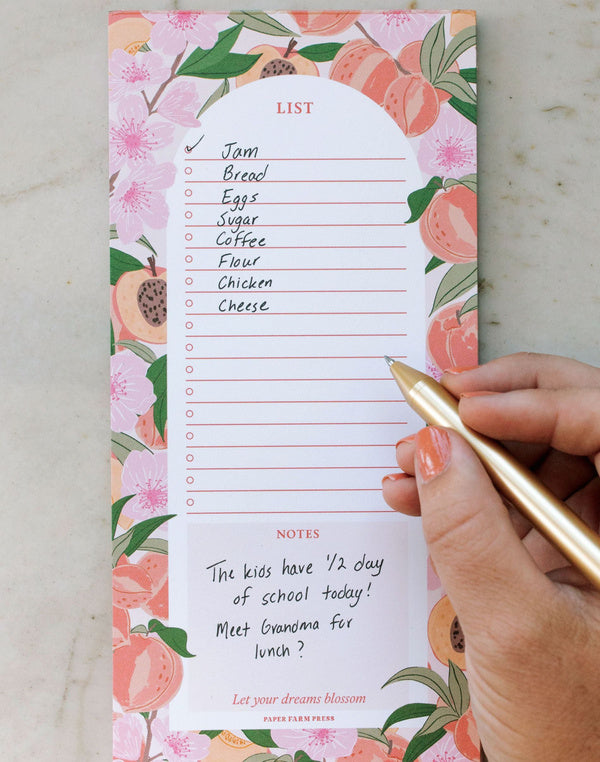 LIST
Jam
Bread
Eggs
Sugar
Coffee
Flour
Chicken
Cheese
NOTES
The kids have 1/2 day
of school today!
Meet Grandma for
lunch?
Let your dreams blossom
PAPER FARM PRESS